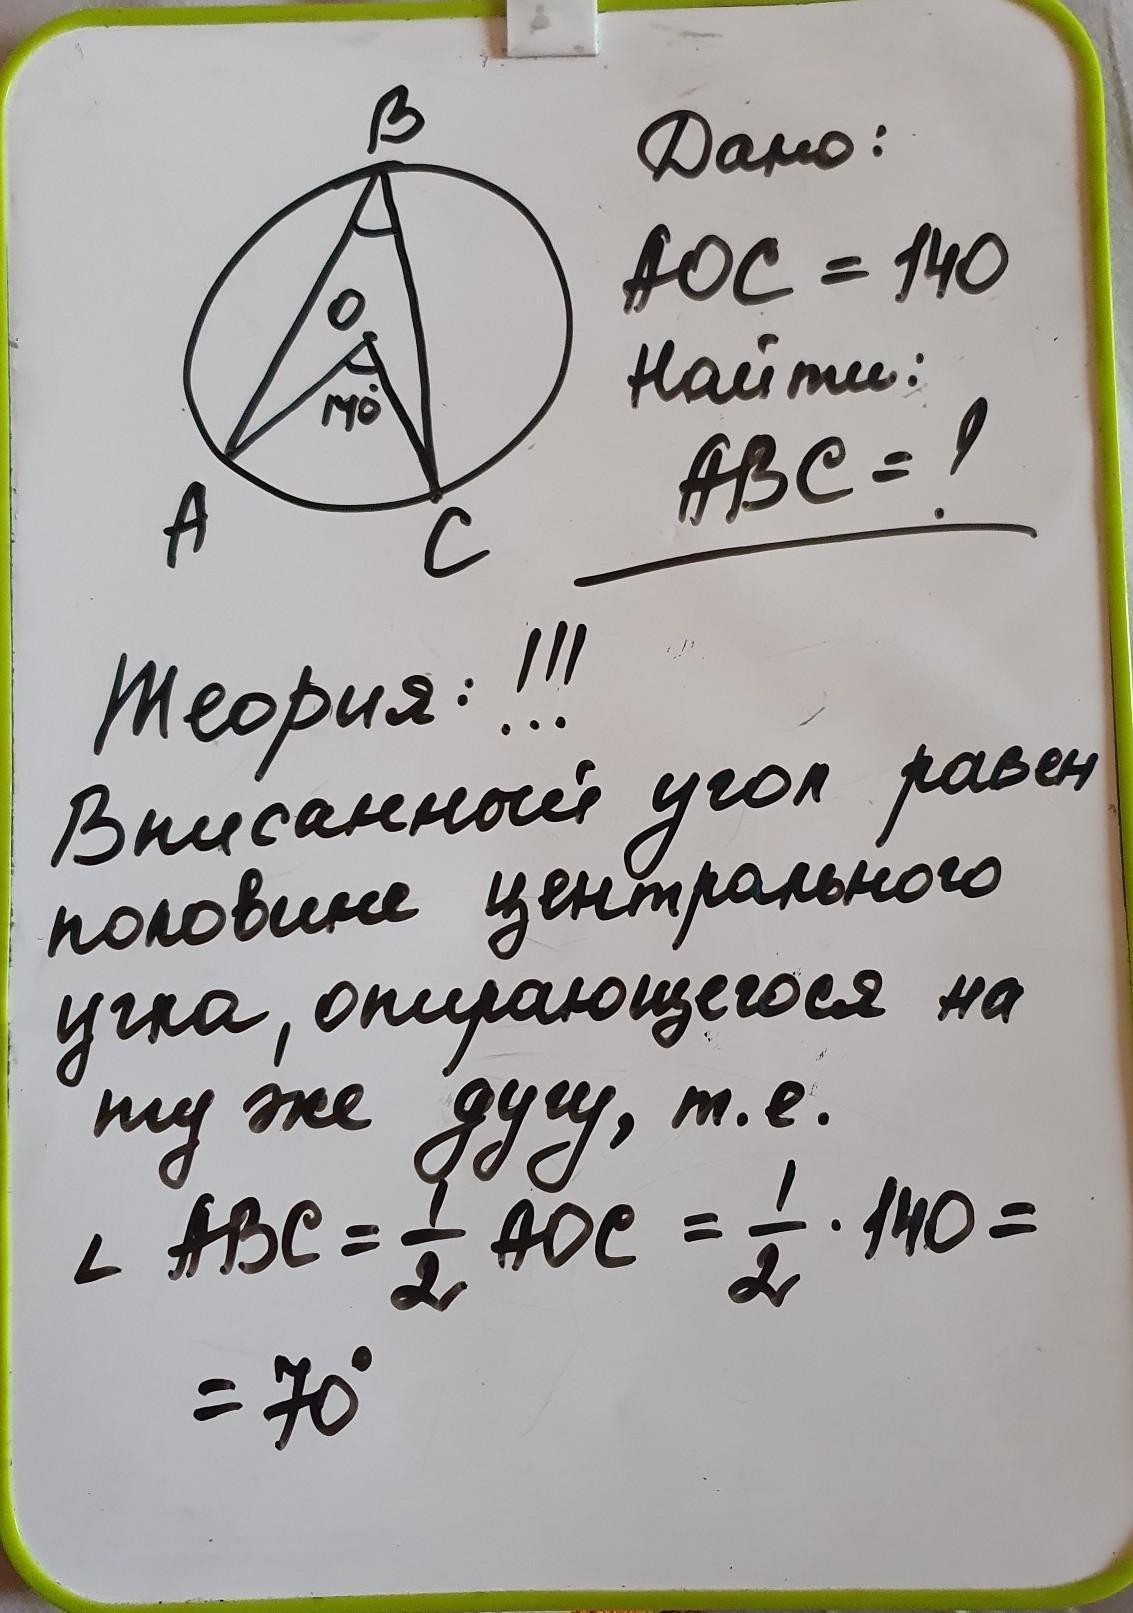 B
O
140°
A
C
Дано:
AOC = 140
Найти:
ABC = ?
Теория: !!!
Вписанный угол равен
половине центрального
угла, опирающегося на
ту же дугу, т.е.
∠ ABC = 1/2 AOC = 1/2 · 140 =
= 70°